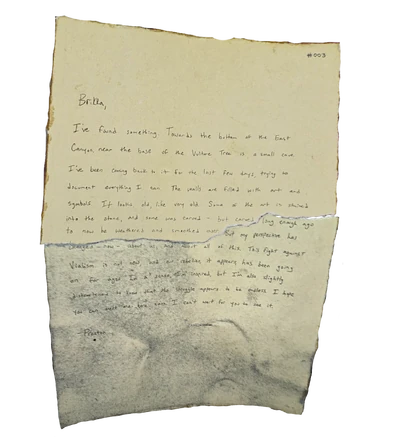 #003
Brilla,
I've found something. Towards the bottom of the East
Canyon near the base of the Vulture Tree is a small cave.
I've been coming back to it for the last few days, trying to
document everything I can. The walls are filled with art and
symbols. It looks old, like very old. Some of the art is stained
into the stone, and some was carved - but carved long enough ago
to now be weathered and smoothed over. But my perspective has
all of this. This fight against
is not new and our rebellion it appears has been going
on for ages. I'm of course inspired, but I'm also slightly
to know that the struggle appears to be endless. I hope
you can meet me here soon. I can't wait for you to see it.